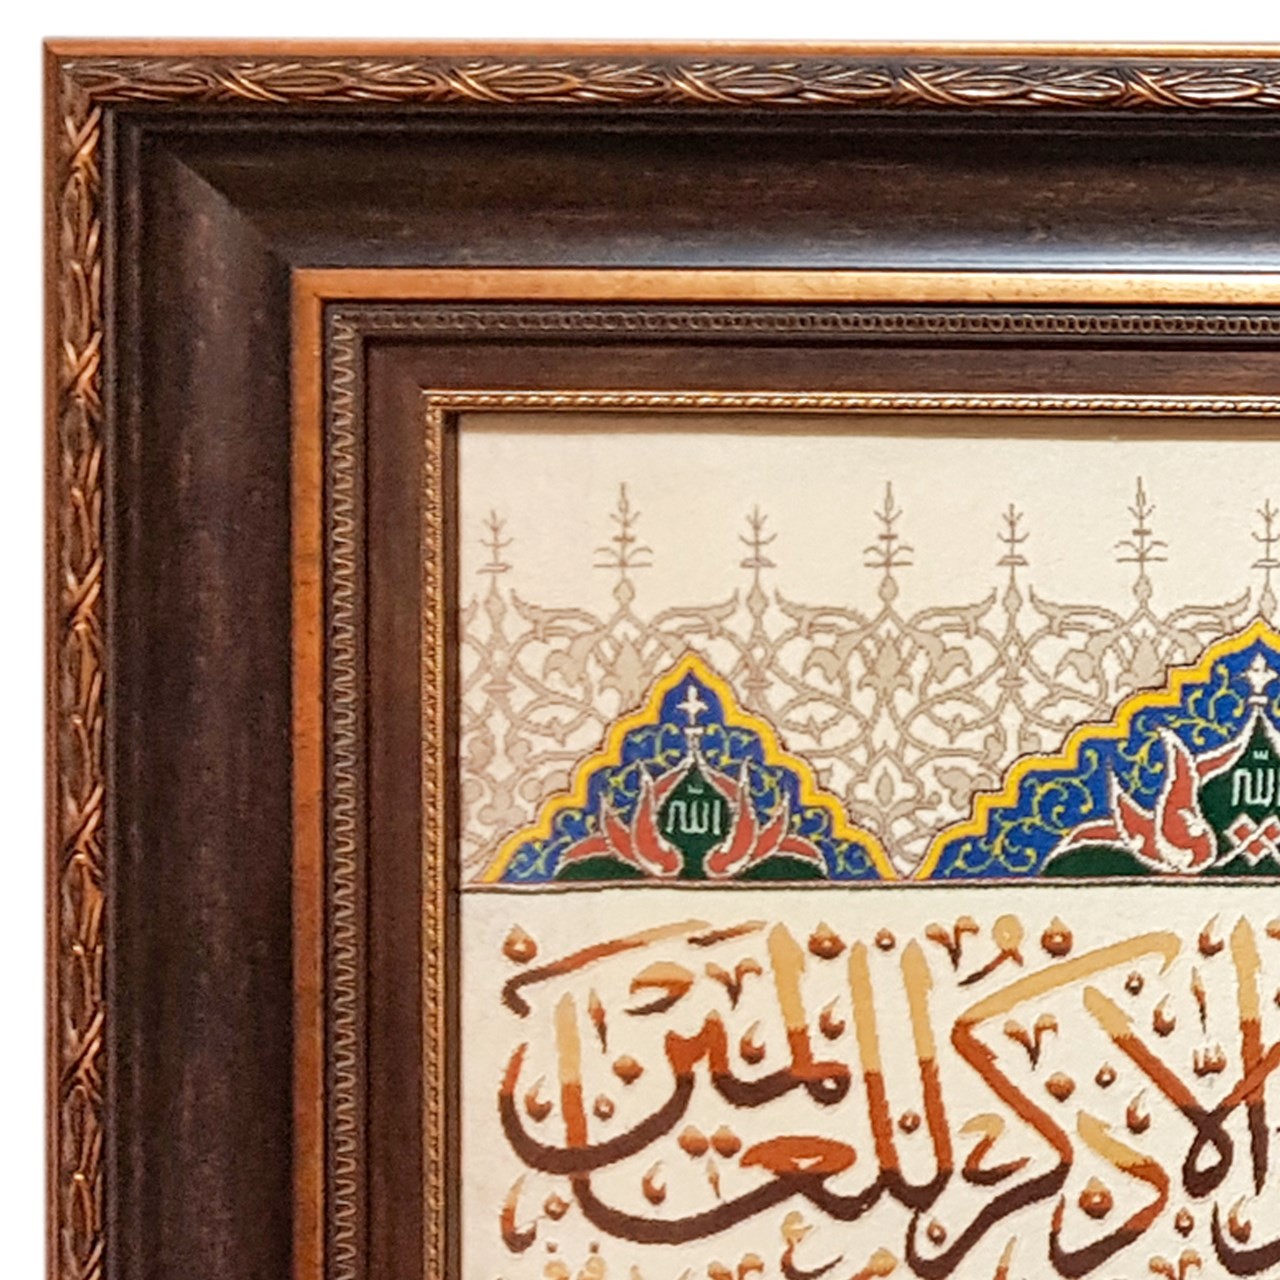 الله الله
الا ذكر للعالمين